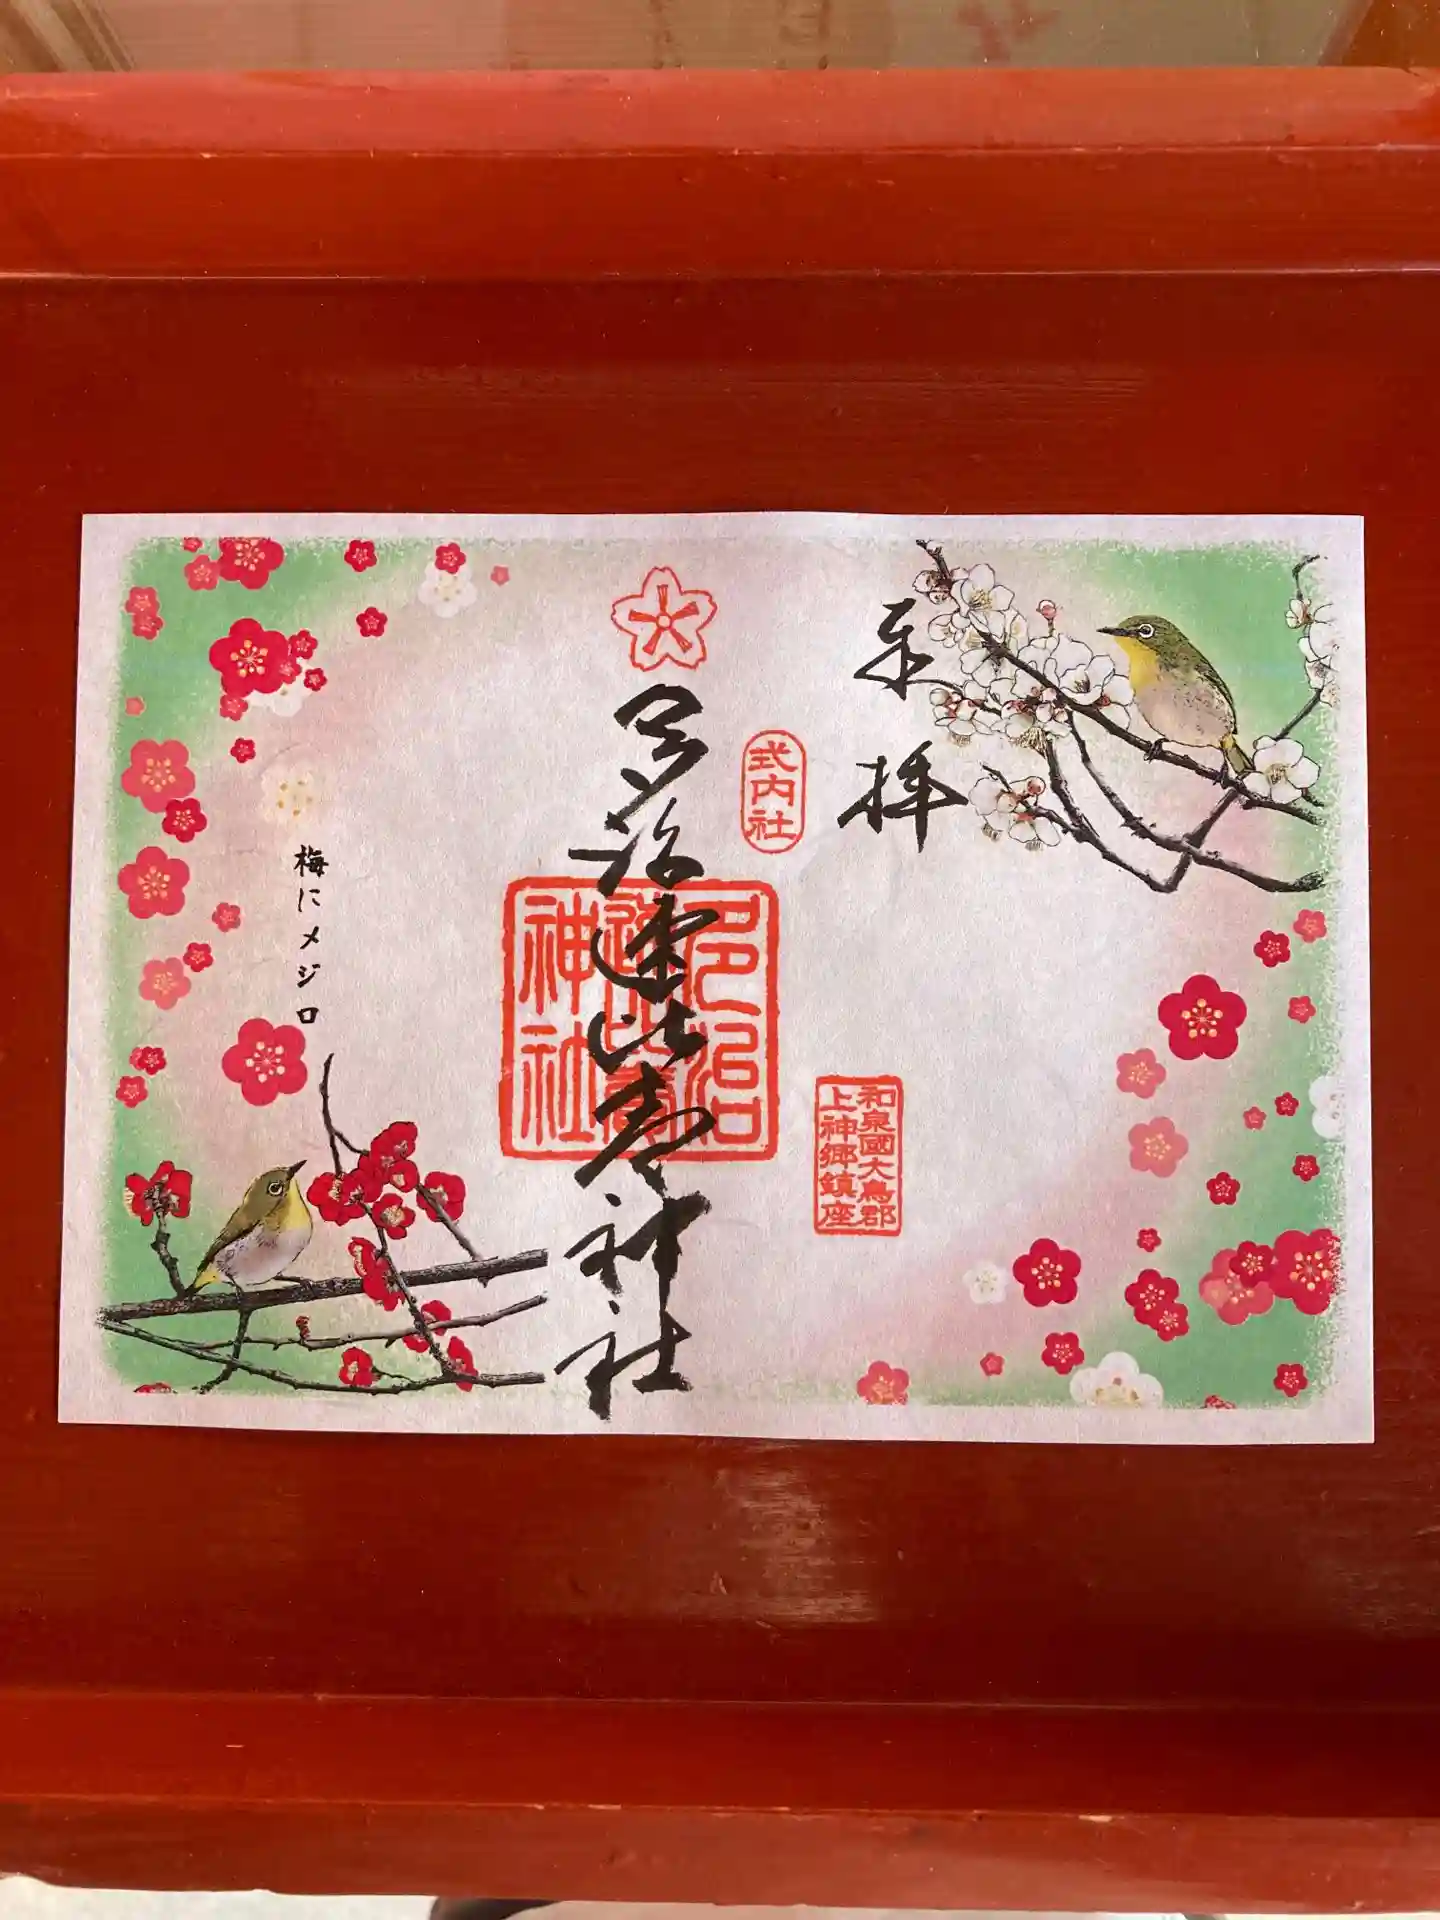 奉拝
式内社
和泉國大鳥郡
上神郷鎮座
多治速比賣神社
多治
速比賣
神社
梅にメジロ